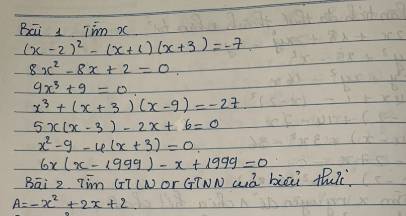 Bài 1. Tìm x
(x-2)² - (x+1)(x+3) = -7
8x² - 8x + 2 = 0.
9x³ + 9 = 0.
x³ + (x+3)(x-9) = -27.
5x(x-3) - 2x + 6 = 0
x² - 9 - 4(x+3) = 0.
6x(x-1999) - x + 1999 = 0
Bài 2 Tìm GTLN or GTNN của biểu thức.
A = -x² + 2x + 2.